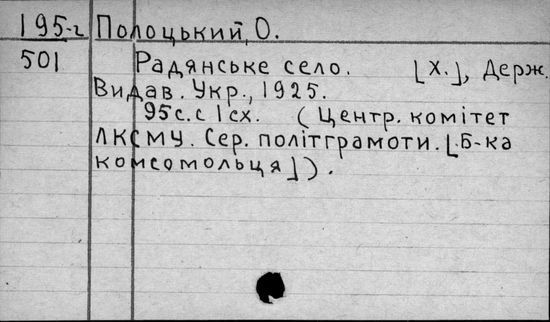 195-г Полоцький, О.
501 Радянське село. [Х.], Держ.
Видав. Укр., 1925.
95с.с 1сх. (Центр. комітет
ЛКСМУ. Сер. політграмоти. [Б-ка
комсомольця]).